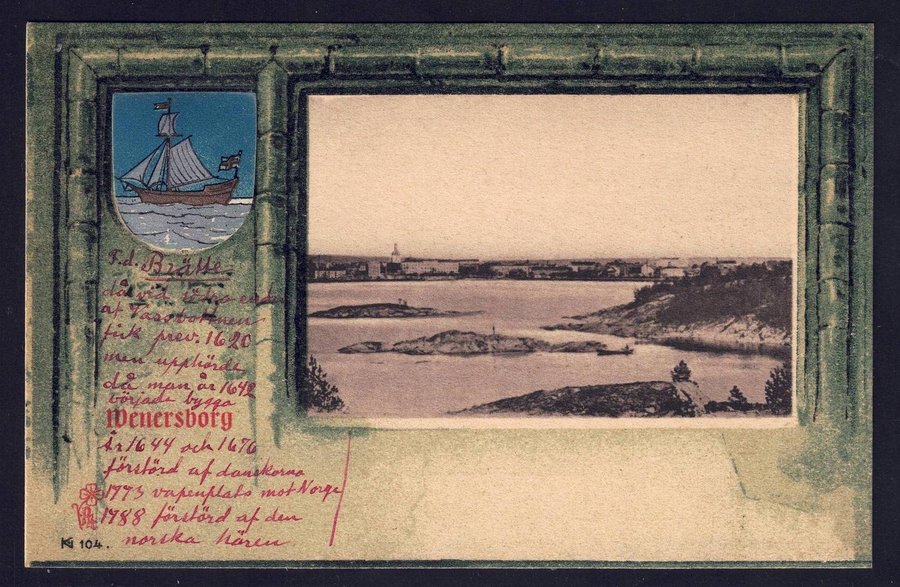 F.d. Brätte
då vid södra
af Vassbotten
fick priv. 1620
men upphörde
då man år 1642
började bygga
Wenersborg
År 1644 och 1676
förstörd af danskarna
1773 vapenplats mot Norge
1788 förstörd af den
norska hären
104.